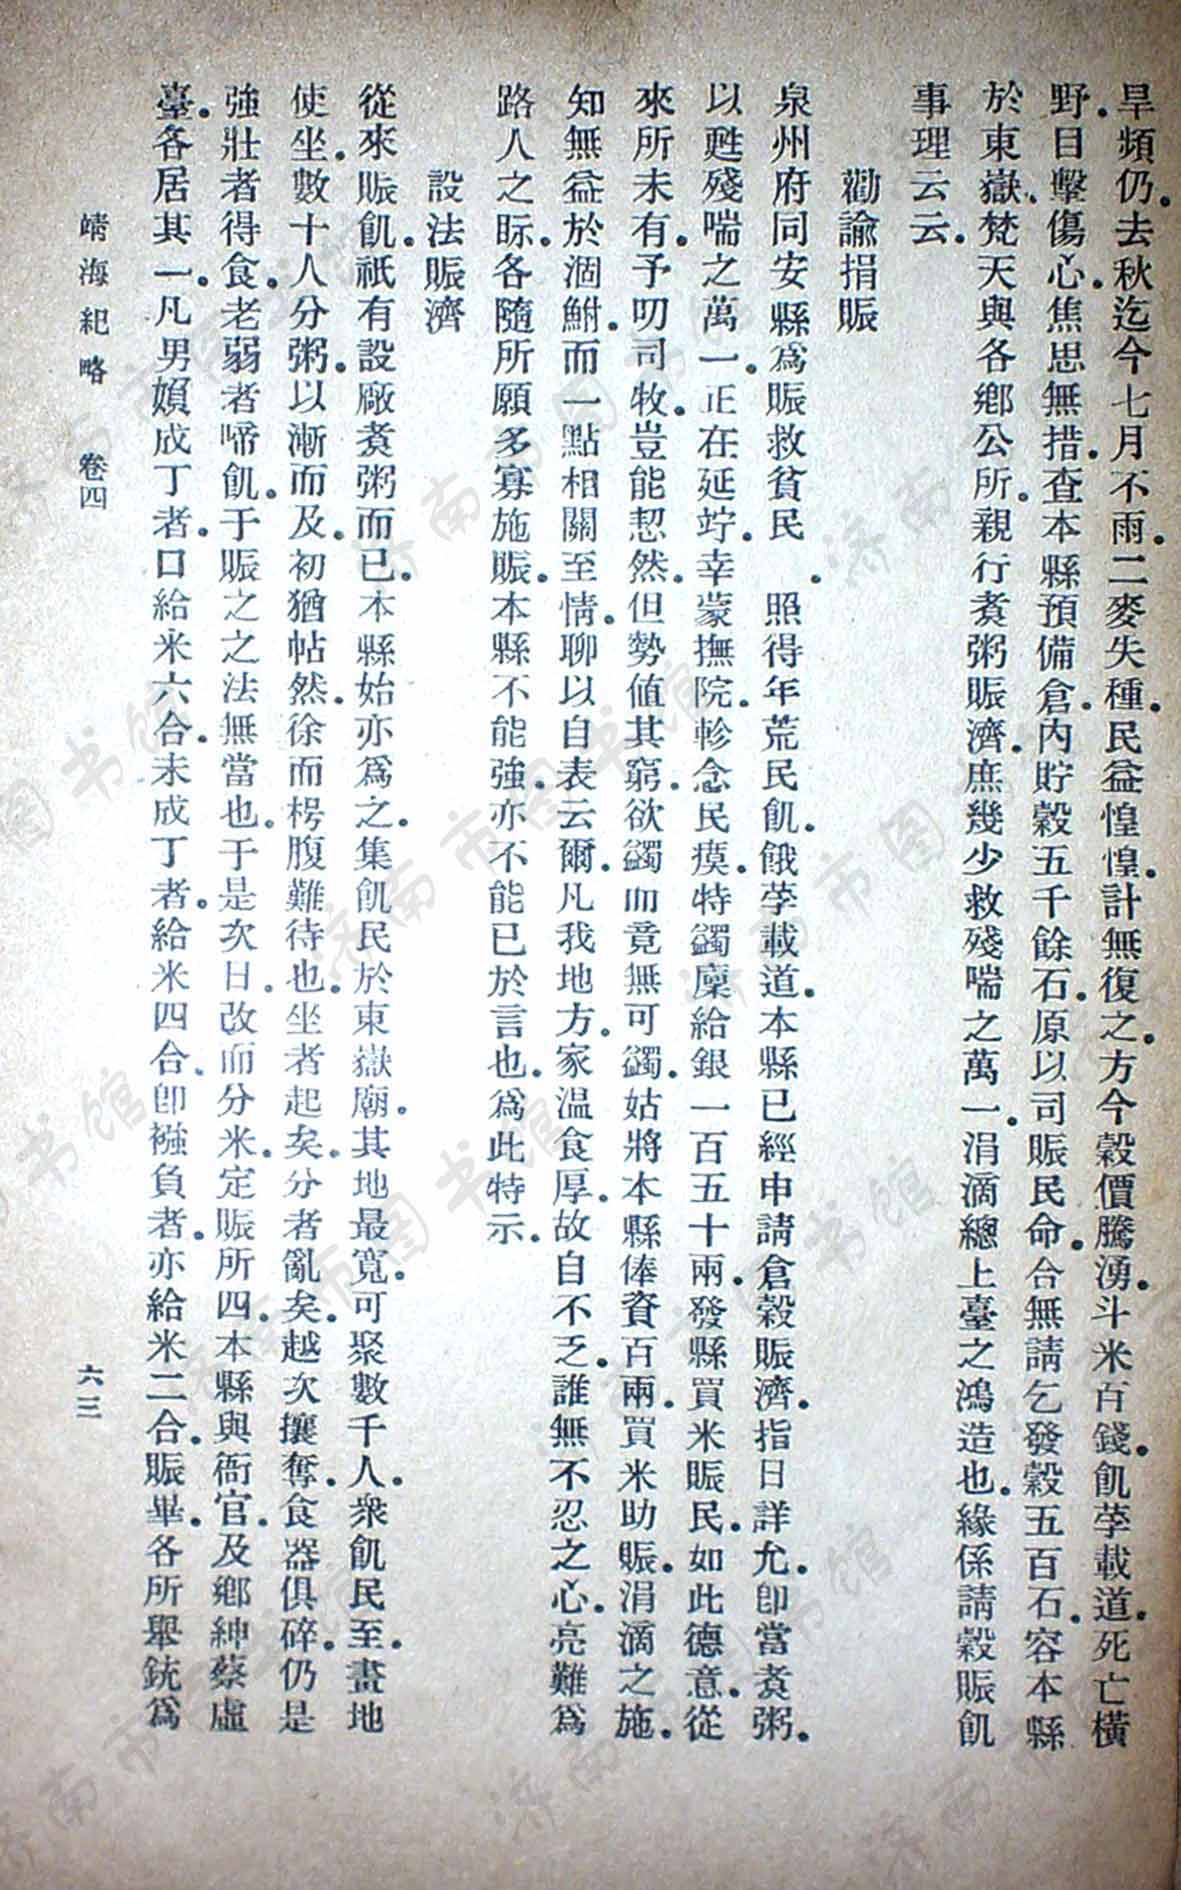 旱頻仍。去秋迄今七月不雨。二麥失種。民益惶惶。計無復之。方今穀價騰湧。斗米百錢。飢莩載道。死亡橫
野。目擊傷心。焦思無措。查本縣預備倉。內貯穀五千餘石。原以司賑民命。合無請乞發穀五百石。容本縣
於東嶽、梵天與各鄉公所。親行煮粥賑濟。庶幾少救殘喘之萬一。涓滴總上臺之鴻造也。緣係請穀賑飢
事理云云。
勸諭捐賑
泉州府同安縣爲賑救貧民。照得年荒民飢。餓莩載道。本縣已經申請倉穀賑濟。指日詳允。卽當煮粥。
以甦殘喘之萬一。正在延竚。幸蒙撫院。軫念民瘼。特蠲廩給銀一百五十兩。發縣買米賑民。如此德意。從
來所未有。予叨司牧。豈能恝然。但勢値其窮。欲蠲而竟無可蠲。姑將本縣俸資百兩。買米助賑。涓滴之施。
知無益於涸鮒。而一點相關至情。聊以自表云爾。凡我地方。家温食厚。故自不乏。誰無不忍之心。亮難爲
路人之眎。各隨所願。多寡施賑。本縣不能強。亦不能已於言也。爲此特示。
設法賑濟
從來賑飢。祇有設廠煮粥而已。本縣始亦爲之。集飢民於東嶽廟。其地最寬。可聚數千人。衆飢民至。畫地
使坐。數十人分粥。以漸而及。初猶帖然。徐而枵腹難待也。坐者起矣。分者亂矣。越次攘奪。食器俱碎。仍是
強壯者得食。老弱者啼飢。于賑之之法無當也。于是次日。改而分米。定賑所四。本縣與衙官。及鄉紳蔡虛
臺。各居其一。凡男嬪成丁者。口給米六合。未成丁者。給米四合、卽襁負者。亦給米二合。賑畢。各所舉銃爲
靖海紀略　卷四
六三